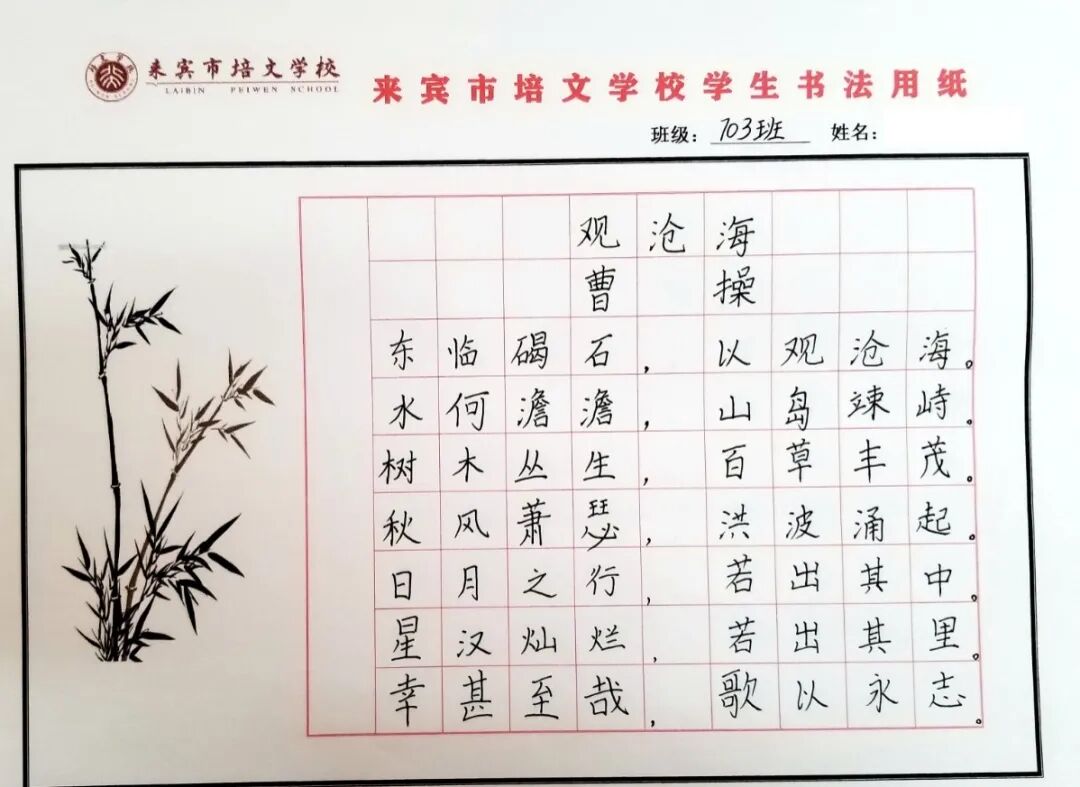 来宾市培文学校
LAIBIN PEIWEN SCHOOL
来宾市培文学校学生书法用纸
班级：703班 姓名：
观沧海
曹操
东临碣石，以观沧海。
水何澹澹，山岛竦峙。
树木丛生，百草丰茂。
秋风萧瑟，洪波涌起。
日月之行，若出其中。
星汉灿烂，若出其里。
幸甚至哉，歌以永志。